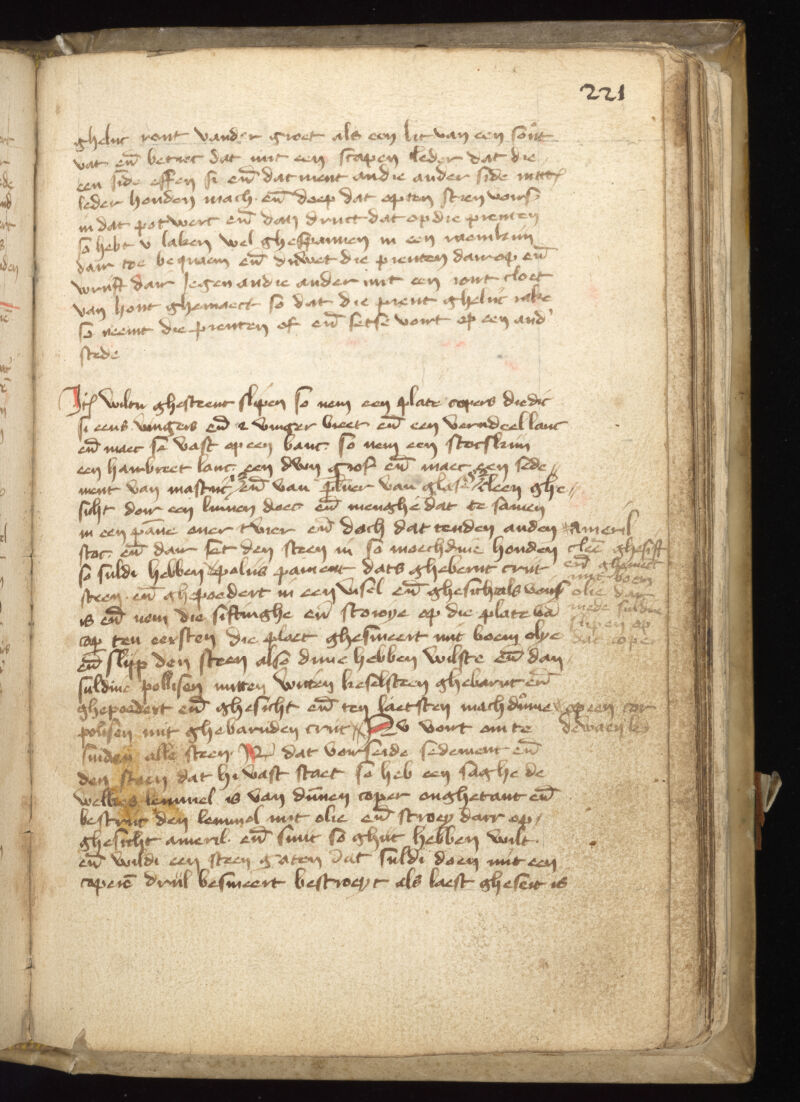 221
gheluc ront vander groet als een lit van een sout
vat eñ betrec dat mit een scapen leder dat die
een side effen si eñ datment andie ander side mitt
leder houden mach eñ doep dat opten steen vors
in dat potwerc eñ dan druct dat op die prenten
so hebt v laken wel ghespannen in een raemkin
dair toe bequaem eñ duwet die prenten dair op eñ
wrijft dair jegen andie ander mit een ront cloet
van hout ghemaect so dat die prent ghelijc rake
so neemt die prenten of eñ setse voirt op een and'
stede
Itē wiltu ghesteent slipen so nem een plate copers diedic
si eens vingers eñ 2 vinger breet eñ een verndeel lanc
eñ maec se vast op een banc so nem een stocskijn
een hantbreet lanc een dwn grof eñ maec een sede
ment van mastic eñ van puluer van glase cleen ghe
sicht door een linnen doec eñ menghe dat te samen
in een panne ouer tvier eñ doch dat tenden anden
stoc eñ dair set den steen in so moechdine houden
so suldi hebben polijs pament dats ghebernt crut
steen eñ ghepoedert in een visel eñ ghesicht als vors
is eñ nem die siftinghe eñ stroye op die plate van
cop ten eersten die plaet ghesmeert mit boem olye
eñ slijp den steen also dine hebben wilste eñ dan
suldine pollisen mitten witten keselsteen ghebarnt eñ
ghepoedert eñ ghesicht eñ ten laetsten machdune
polisen mit ghebarnden crut Nv voirt om te
sniden alle steen dat voirseide sedement eñ
den steen dat hi vast staet so heb een saghe de
welkes lemmel is van dunen coper onghetant eñ
bestrijc den lemmel mit olie eñ stroey dair op
ghesicht ameril eñ snijt so ghijt hebben wilt
eñ wildi een steen gaten dat suldi doen mit een
coperē dril besmeert bestroeyt als laest gheseit is
ameril
cleē ghesift
eñ ghemēct
mit boem
olie dair
mede suldine
slipen op
dat coper
op een cor
dewaen led